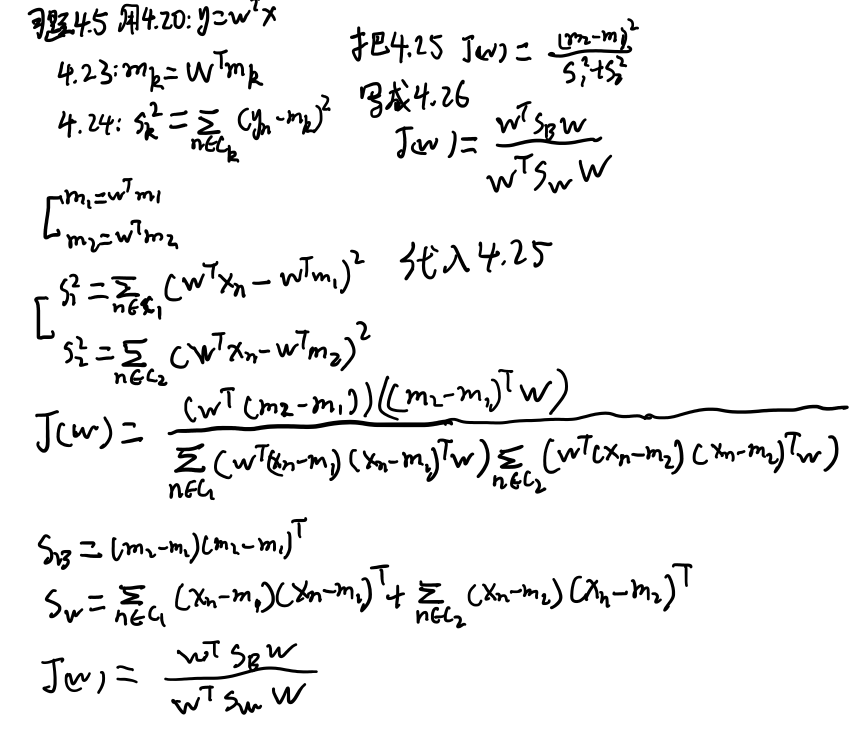 习题4.5 用4.20: y=wᵀx
4.23: mₖ=Wᵀmₖ
4.24: sₖ²=∑_{n∈Cₖ}(yₙ-mₖ)²
把4.25 J(w)=(m₂-m₁)²/(s₁²+s₂²)
写成4.26
J(w)=wᵀS_Bw/wᵀS_wW
m₁=wᵀm₁
m₂=wᵀm₂
s₁²=∑_{n∈C₁}(wᵀxₙ-wᵀm₁)² 代入4.25
s₂²=∑_{n∈C₂}(wᵀxₙ-wᵀm₂)²
J(w)=(wᵀ(m₂-m₁))((m₂-m₁)ᵀw)/∑_{n∈C₁}(wᵀ(xₙ-m₁)(xₙ-m₁)ᵀw)∑_{n∈C₂}(wᵀ(xₙ-m₂)(xₙ-m₂)ᵀw)
S_B=(m₂-m₁)(m₂-m₁)ᵀ
S_w=∑_{n∈C₁}(xₙ-m₁)(xₙ-m₁)ᵀ+∑_{n∈C₂}(xₙ-m₂)(xₙ-m₂)ᵀ
J(w)=wᵀS_Bw/wᵀS_wW